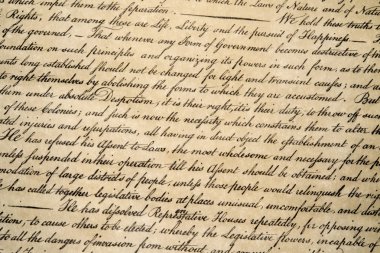 which impel them to the separation. We hold these truths
Rights, that among these are Life, Liberty and the pursuit of Happiness.
of the governed, — That whenever any Form of Government becomes destructive of the
foundation on such principles and organizing its powers in such form, as to them
ments long established should not be changed for light and transient causes; and
to right themselves by abolishing the forms to which they are accustomed. But
them under absolute Despotism, it is their right, it is their duty, to throw off such
of these Colonies; and such is now the necessity which constrains them to alter their
ated injuries and usurpations, all having in direct object the establishment of an
He has refused his Assent to Laws, the most wholesome and necessary for the p
unless suspended in their operation till his Assent should be obtained; and when
modation of large districts of people, unless those people would relinquish the right
He has called together legislative bodies at places unusual, uncomfortable, and dista
He has dissolved Represtative Houses repeatedly, for opposing with
tions, to cause others to be elected; whereby the Legislative powers, incapable of
to all the dangers of invasion from without, and